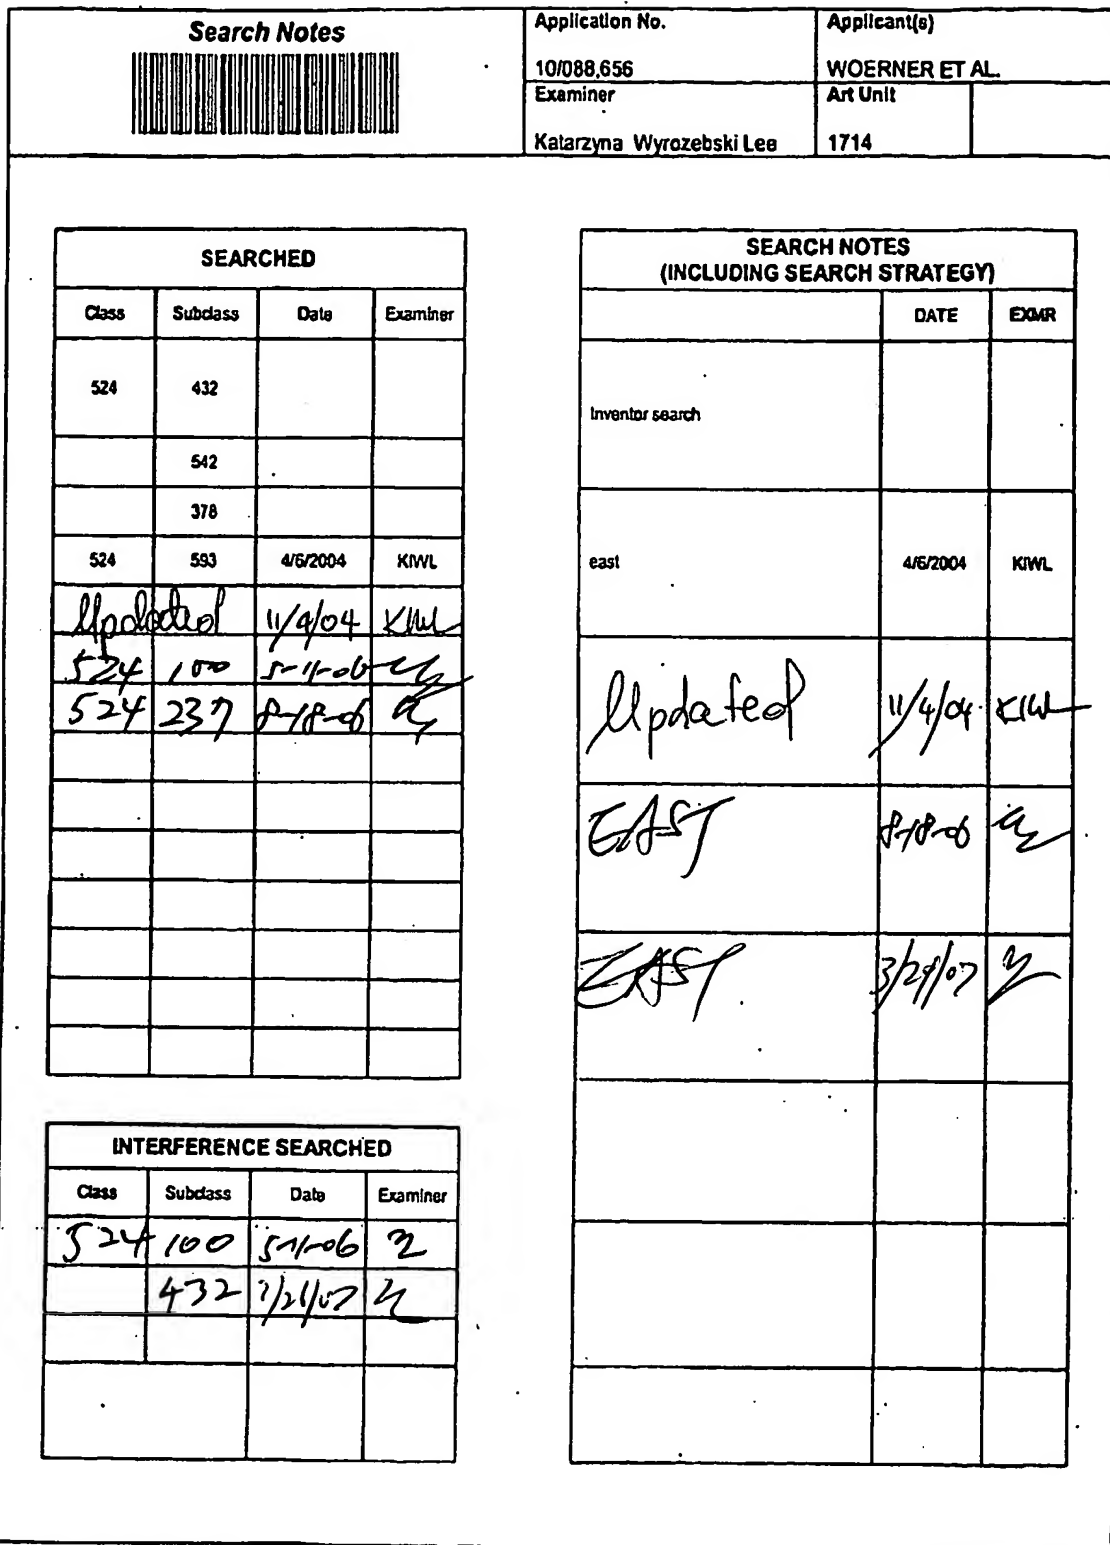 Search Notes
Application No.
Applicant(s)
10/088,656
WOERNER ET AL.
Examiner
Art Unit
Katarzyna Wyrozebski Lee
1714
SEARCHED
Class Subclass Date Examiner
524 432
542
378
524 593 4/6/2004 KIWL
Updated 11/4/04 KIWL
524 100 5-11-06
524 237 8-18-06
INTERFERENCE SEARCHED
Class Subclass Date Examiner
524 100 5-11-06
432
SEARCH NOTES
(INCLUDING SEARCH STRATEGY)
DATE EXMR
Inventor search
east 4/6/2004 KIWL
Updated 11/4/04 KIWL
EAST 8-18-06
EAST 3/29/07